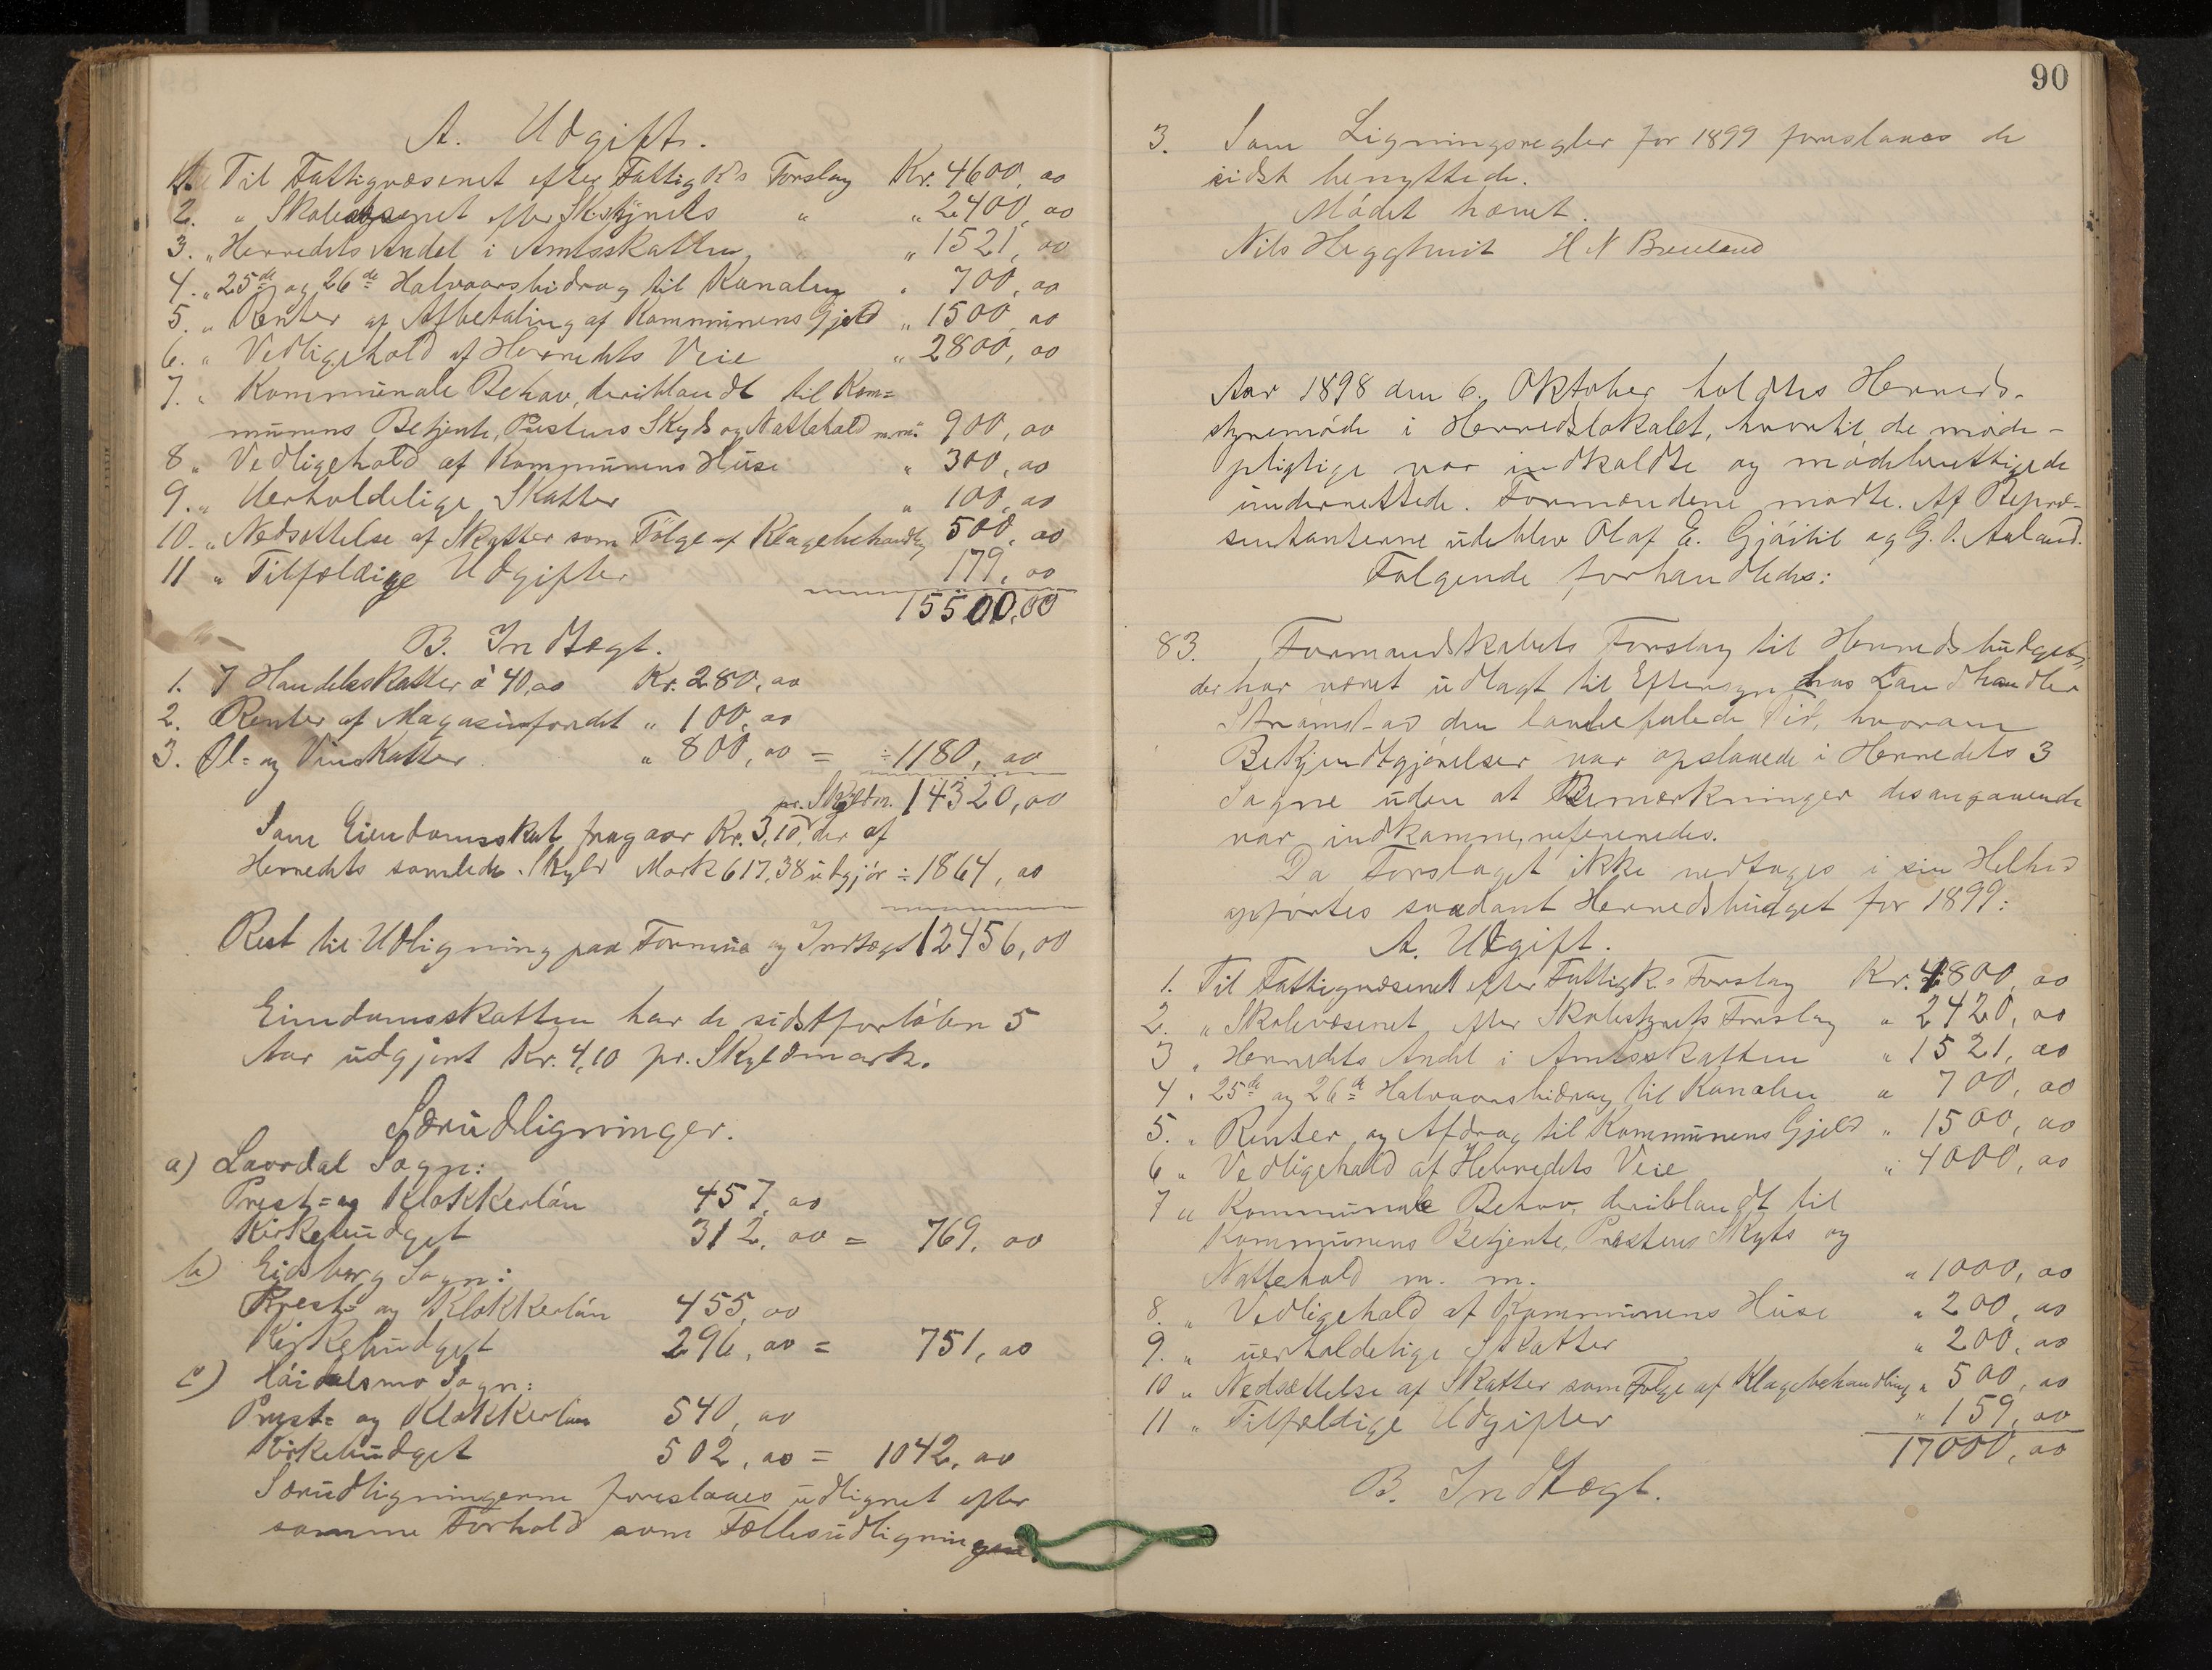 A. Udgift.
1. Til Fattigvæsenet efter Fattigk's Forslag Kr. 4600,00
2. " Skolevæsenet efter Sk.styrets " " 2400,00
3. " Herredets Andel i Amtsskatten " 1521,00
4. " 25de og 26de Halvaarsbidrag til Kanalen " 700,00
5. " Renter af Afbetaling af Kommunens Gjeld " 1500,00
6. " Vedligehold af Herredets Veie " 2800,00
7. " Kommunale Behov, deriblandt til Kom=
munens Betjente, Prestens Skyds og Nattehold m.m. 900,00
8 " Vedligehold af Kommunens Huse " 300,00
9. " Uerholdelige Skatter " 100,00
10. " Nedsættelse af Skatter som Følge af Klagebehandlg 500,00
11 " Tilfældige Udgifter 179,00
15500,00
B. Indtægt.
1. 7 Handelsskatter à 40,00 Kr. 280,00
2. Renter af Magasinfondet " 100,00
3. Øl= og Vinskatter " 800,00 = ÷1180,00
14320,00
pr. Skyldm.
Som Eiendomsskat fragaar Kr. 3,10, der af
Herredets samlede Skyld Mark 617,38 udgjør ÷ 1864,00
Rest til Udligning paa Formue og Indtægt 12456,00
Eiendomsskatten har de sidstforløbn 5
Aar udgjort Kr. 4,10 pr. Skyldmark.
Særudligninger.
a) Laurdal Sogn:
Prest= og Klokkerløn 457,00
Kirkebudget 312,00 = 769,00
b) Eidsborg Sogn:
Prest= og Klokkerløn 455,00
Kirkebudget 296,00 = 751,00
c) Høidalsmo Sogn:
Prest= og Klokkerløn 540,00
Kirkebudget 502,00 = 1042,00
Særudligningerne foreslaaes udlignet efter
samme Forhold som Fællesudligningen.
90
3. Som Ligningsregler for 1899 foreslaaes de
sidst benyttede.
Mødet hævet.
Nils Heggtveit H N Breiland
Aar 1898 den 6. Oktober holdtes Herreds-
styremøde i Herredslokalet, hvortil de møde-
pligtige var indkaldte og mødeberettigede
underrettede. Formændene mødte. Af Repræ-
sentanterne udeblev Olaf E. Gjøitil og G. O. Aaland.
Følgende forhandledes:
83. Formandskabets Forslag til Herredsbudget,
der har været udlagt til Eftersyn hos Landhandler
Strømstad den lovbefalede Tid, hvorom
Bekjendtgjørelser var opslaaede i Herredets 3
Sogne uden at Bemærkninger desangaaende
var indkomne, refereredes.
Da Forslaget ikke vedtages i sin Helhed
opførtes saadant Herredsbudget for 1899:
A. Udgift.
1. Til Fattigvæsenet efter Fattigk's Forslag Kr. 4800,00
2. " Skolevæsenet efter Skolestyrets Forslag " 2420,00
3 " Herredets Andel i Amtsskatten " 1521,00
4 " 25de og 26de Halvaarsbidrag til Kanalen " 700,00
5. " Renter og Afdrag til Kommunens Gjeld " 1500,00
6 " Vedligehold af Herredets Veie " 4000,00
7 " Kommunale Behov, deriblandt til
Kommunens Betjente, Prestens Skyts og
Nattehold m. m. " 1000,00
8. " Vedligehold af Kommunens Huse " 200,00
9. " uerholdelige Skatter " 200,00
10 " Nedsættelse af Skatter som Følge af Klagebehandling " 500,00
11 " Tilfældige Udgifter " 159,00
17000,00
B. Indtægt.